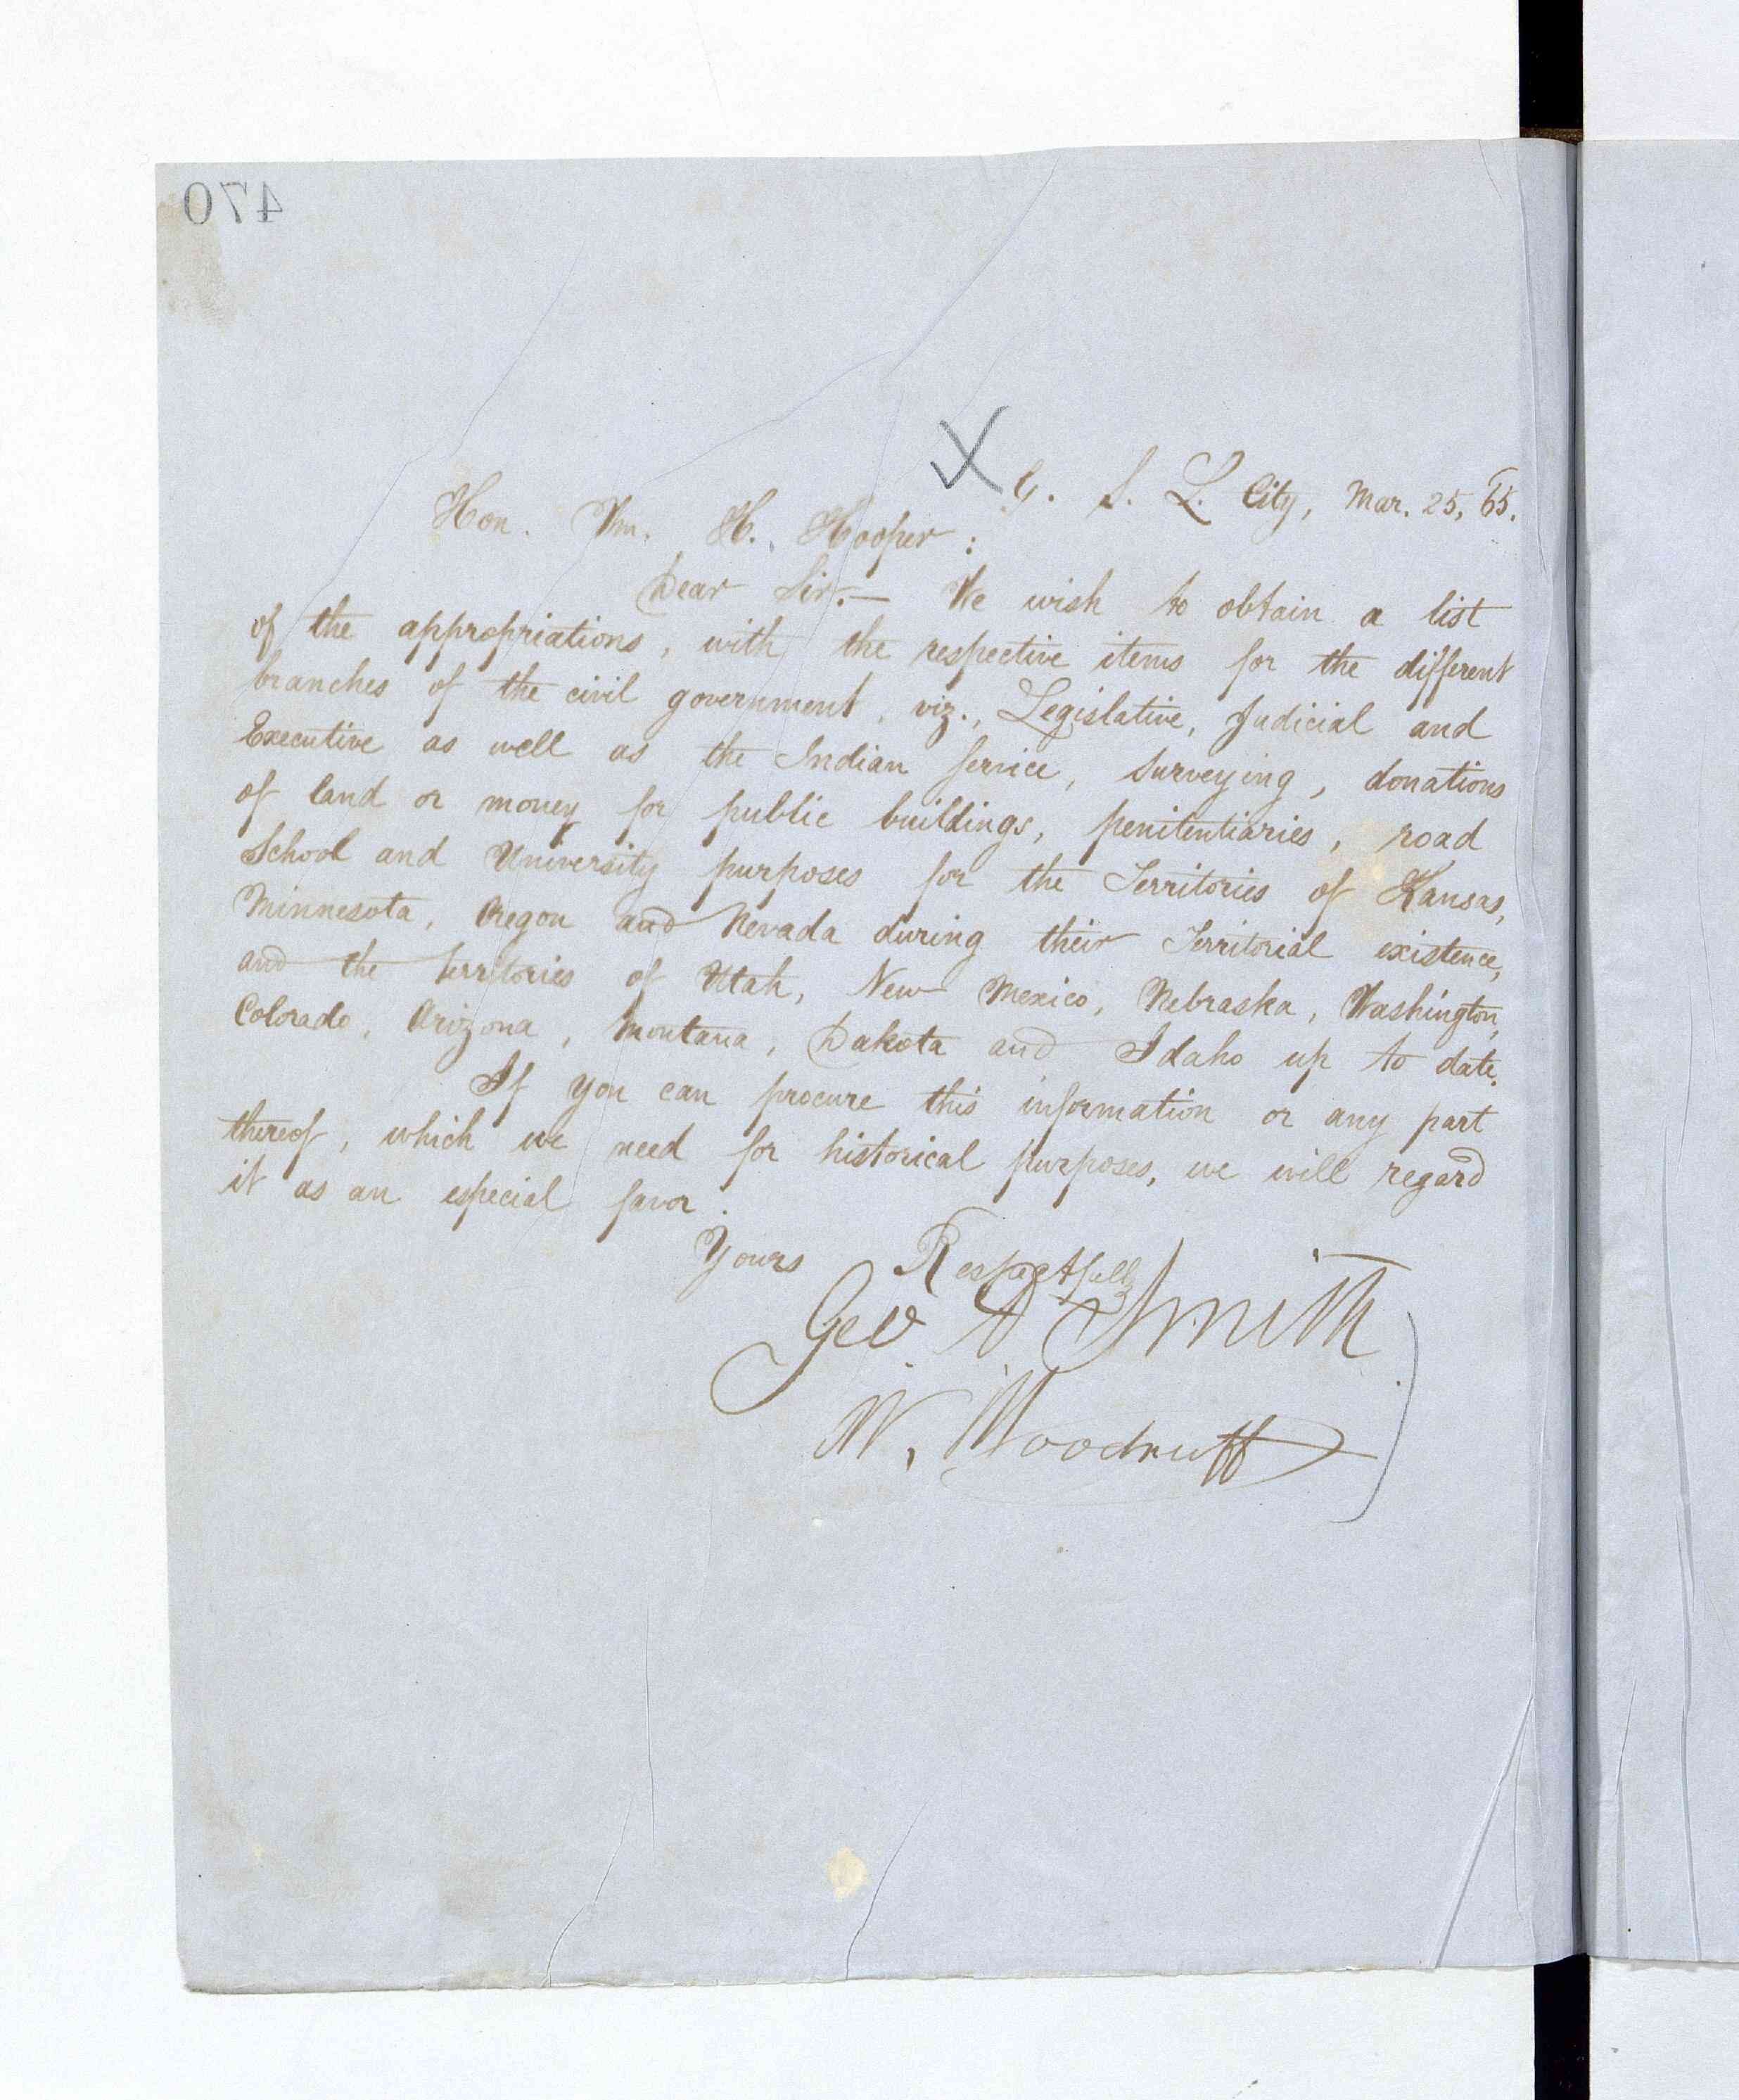 470
G. S. L. City, Mar. 25, 65.
Hon. Wm. H. Hooper:
Dear Sir.— We wish to obtain a list
of the appropriations, with the respective items for the different
branches of the civil government, viz., Legislative, Judicial and
Executive as well as the Indian Service, Surveying, donations
of land or money for public buildings, penitentiaries, road
School and University purposes for the Territories of Kansas,
Minnesota, Oregon and Nevada during their Territorial existence,
and the Territories of Utah, New Mexico, Nebraska, Washington,
Colorado, Arizona, Montana, Dakota and Idaho up to date.
If you can procure this information or any part
thereof, which we need for historical purposes, we will regard
it as an especial favor.
Yours Respectfully
Geo A Smith
W. Woodruff